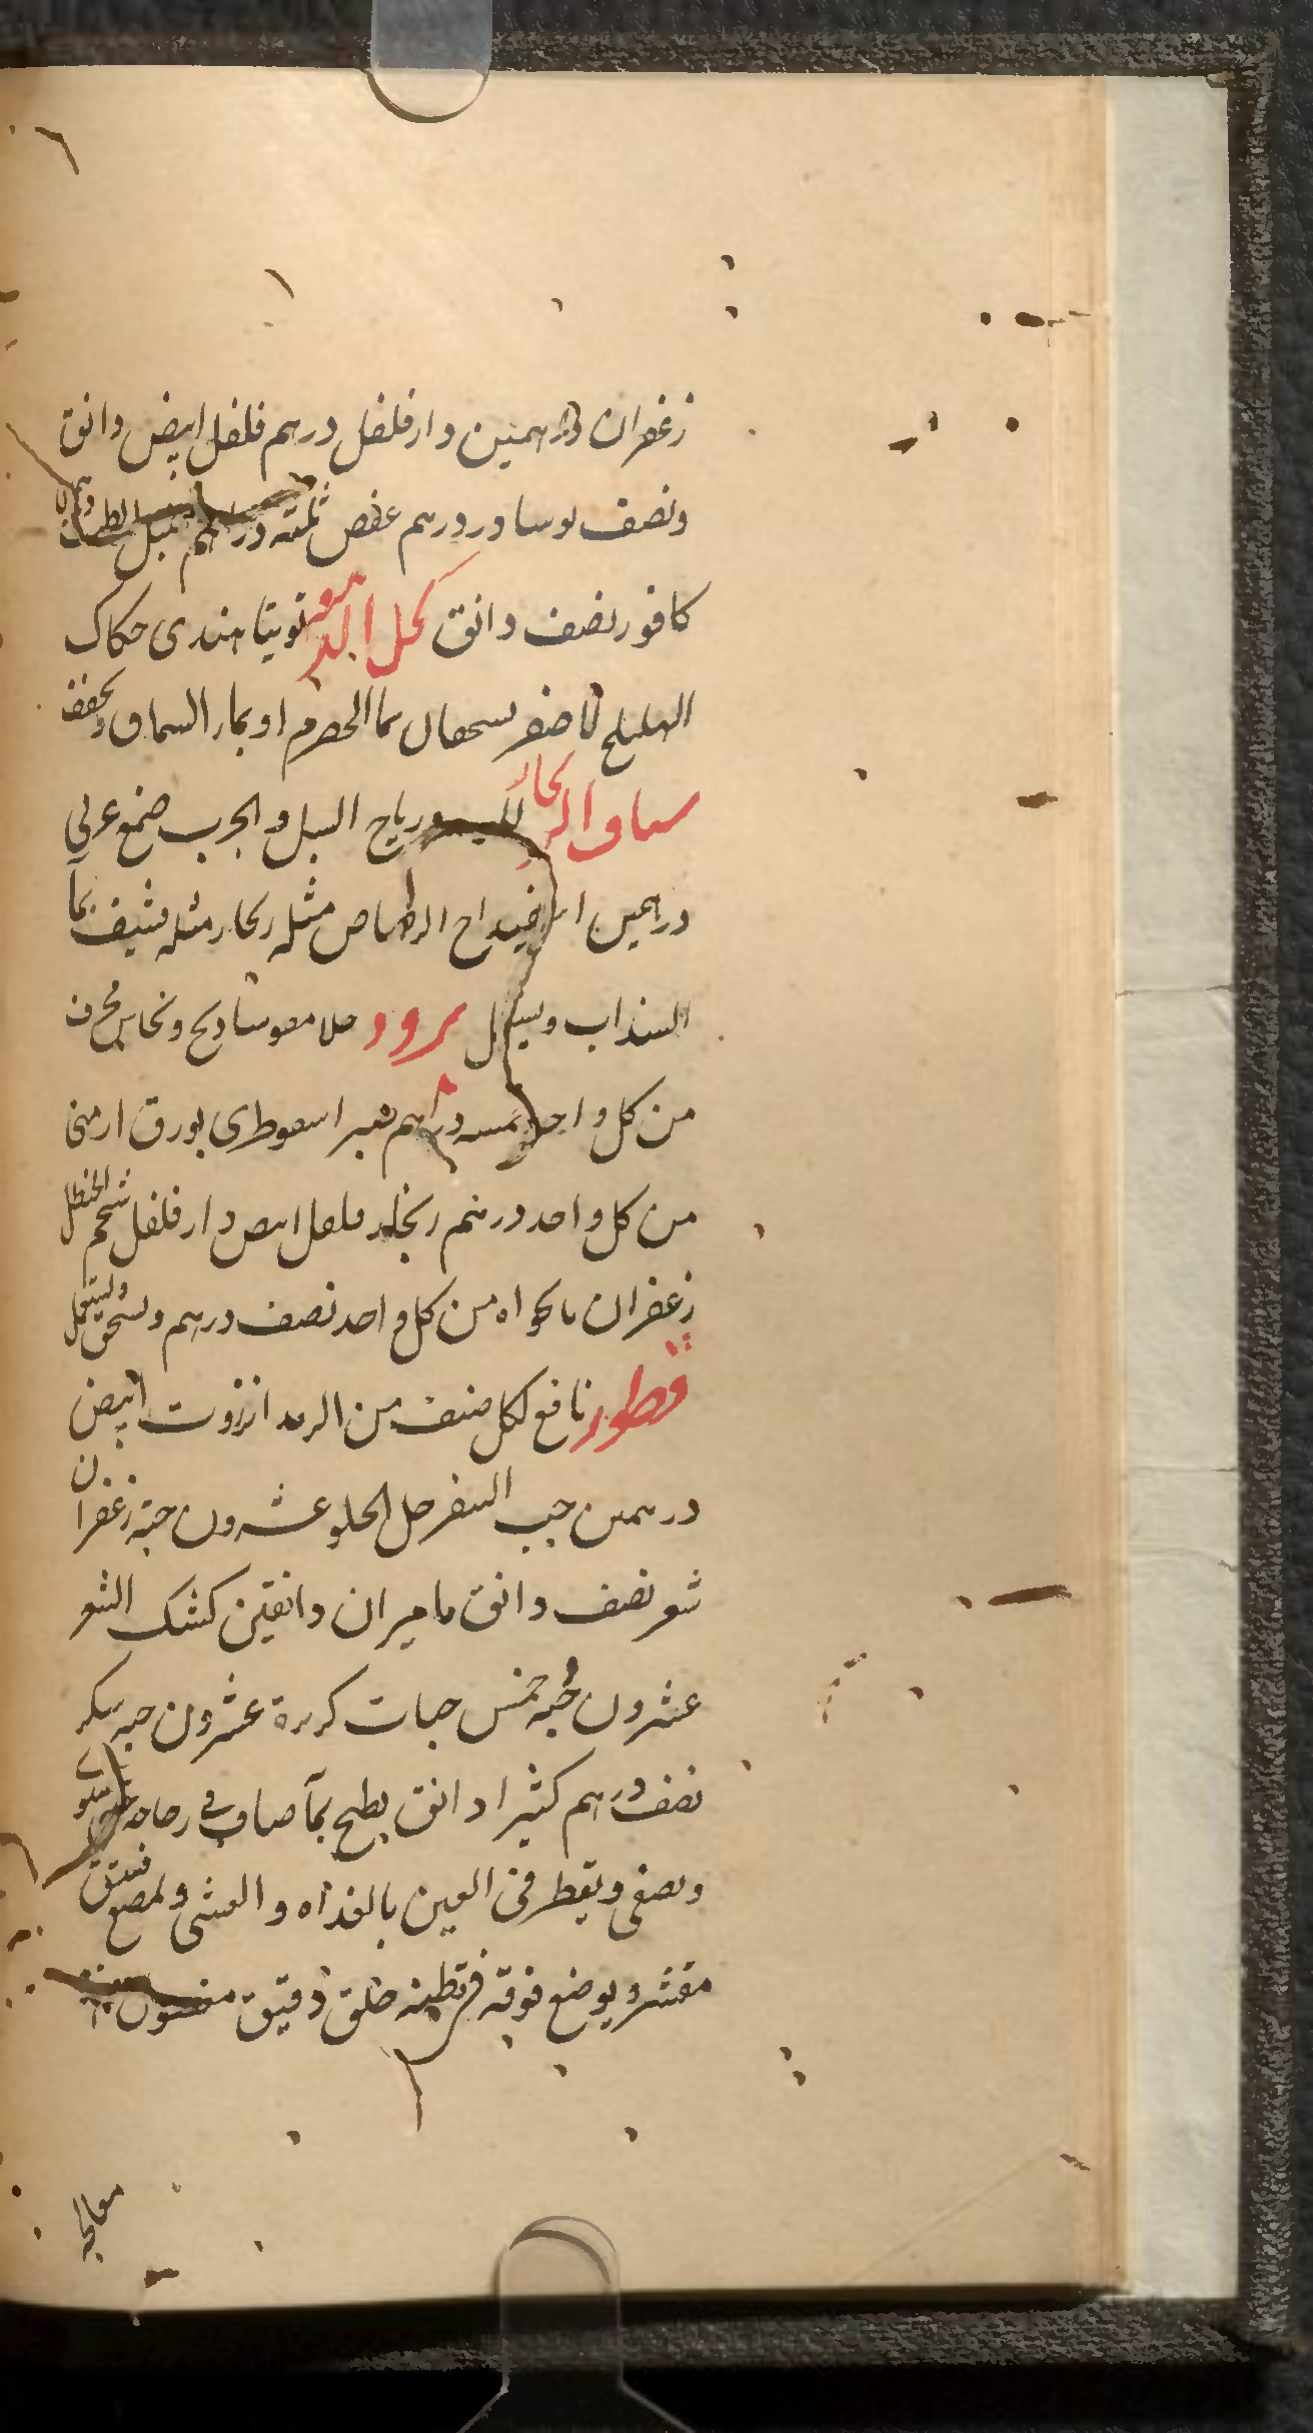 زعفران درهمين دارفلفل درهم فلفل ابيض دانق
ونصف نوسادر درهم عفص ثلثة دراهم سنبل الطيب
كافور نصف دانق كحل الدمعه توتيا هندى حكاك
الهليلج الاصفر يسحقان بماالحصرم او بماء السماق ويجفف
سياف الزنجار للسبل ورياح السبل والجرب صمغ عربي
درهمين اسفيداج الرصاص مثله زنجار مثله يشيف بمآ
السنذاب ويستعمل برود نحاس محرق
من كل واحد خمسه دراهم صبر اسقوطرى بورق ارمنى
من كل واحد درهم زنجبيل فلفل ابيض دارفلفل شحم الحنظل
زعفران من كل واحد نصف درهم ويسحق ويستعمل
قطور نافع لكل صنف من الرمد انزروت ابيض
درهمين حب السفرجل الحلو عشرون حبة زعفران
شعر نصف دانق ماميران دانقين كشك الشعير
عشرون حبه خمس حبات كزبرة عشرون حبه سكر
نصف درهم كثيرا دانق يطبخ بمآ صاف فى
ويصفى ويقطر فى العين بالغذاه والعشى ويمضع فستق
مقشر ويوضع فوقه قطنه خلق دقيق
معالجه